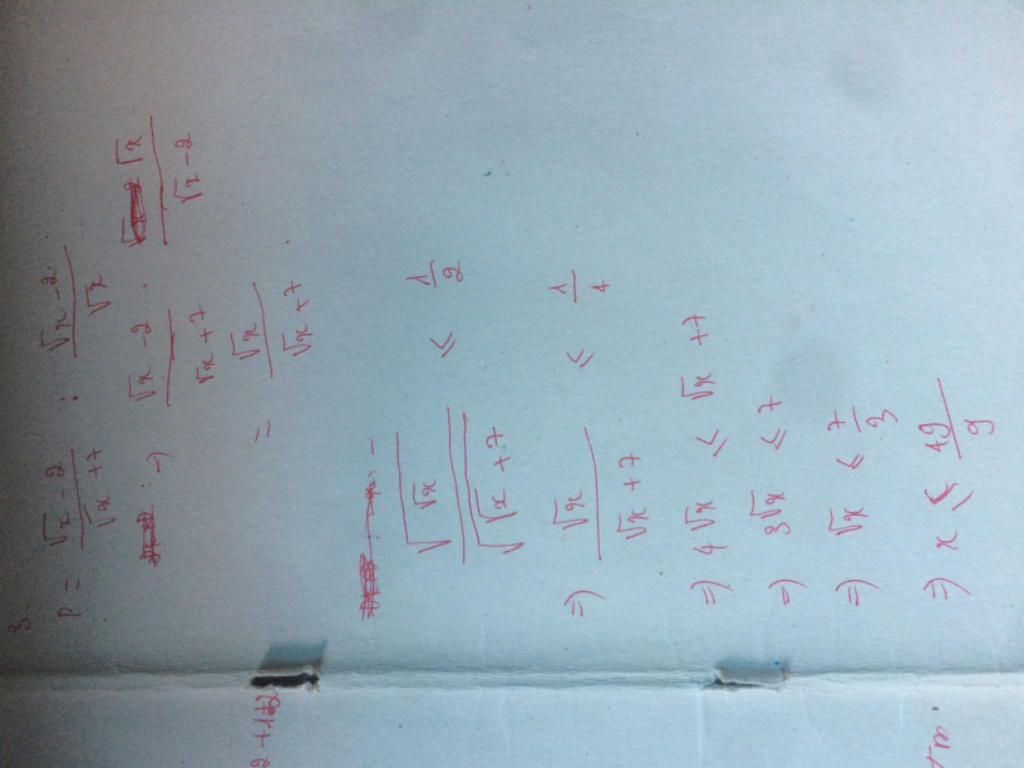 3.
P = \frac{\sqrt{x} - 2}{\sqrt{x} + 7} : \frac{\sqrt{x} - 2}{\sqrt{x}}
\Rightarrow \frac{\sqrt{x} - 2}{\sqrt{x} + 7} \cdot \frac{\sqrt{x}}{\sqrt{x} - 2}
= \frac{\sqrt{x}}{\sqrt{x} + 7}
\frac{\sqrt{\sqrt{x}}}{\sqrt{\sqrt{x} + 7}} \leq \frac{1}{2}
\Rightarrow \frac{\sqrt{x}}{\sqrt{x} + 7} \leq \frac{1}{4}
\Rightarrow 4\sqrt{x} \leq \sqrt{x} + 7
\Rightarrow 3\sqrt{x} \leq 7
\Rightarrow \sqrt{x} \leq \frac{7}{3}
\Rightarrow x \leq \frac{49}{9}